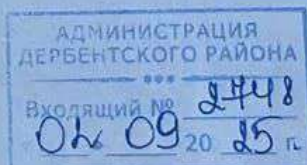 АДМИНИСТРАЦИЯ
ДЕРБЕНТСКОГО РАЙОНА
Входящий № 2748
02 09 20 25 г.